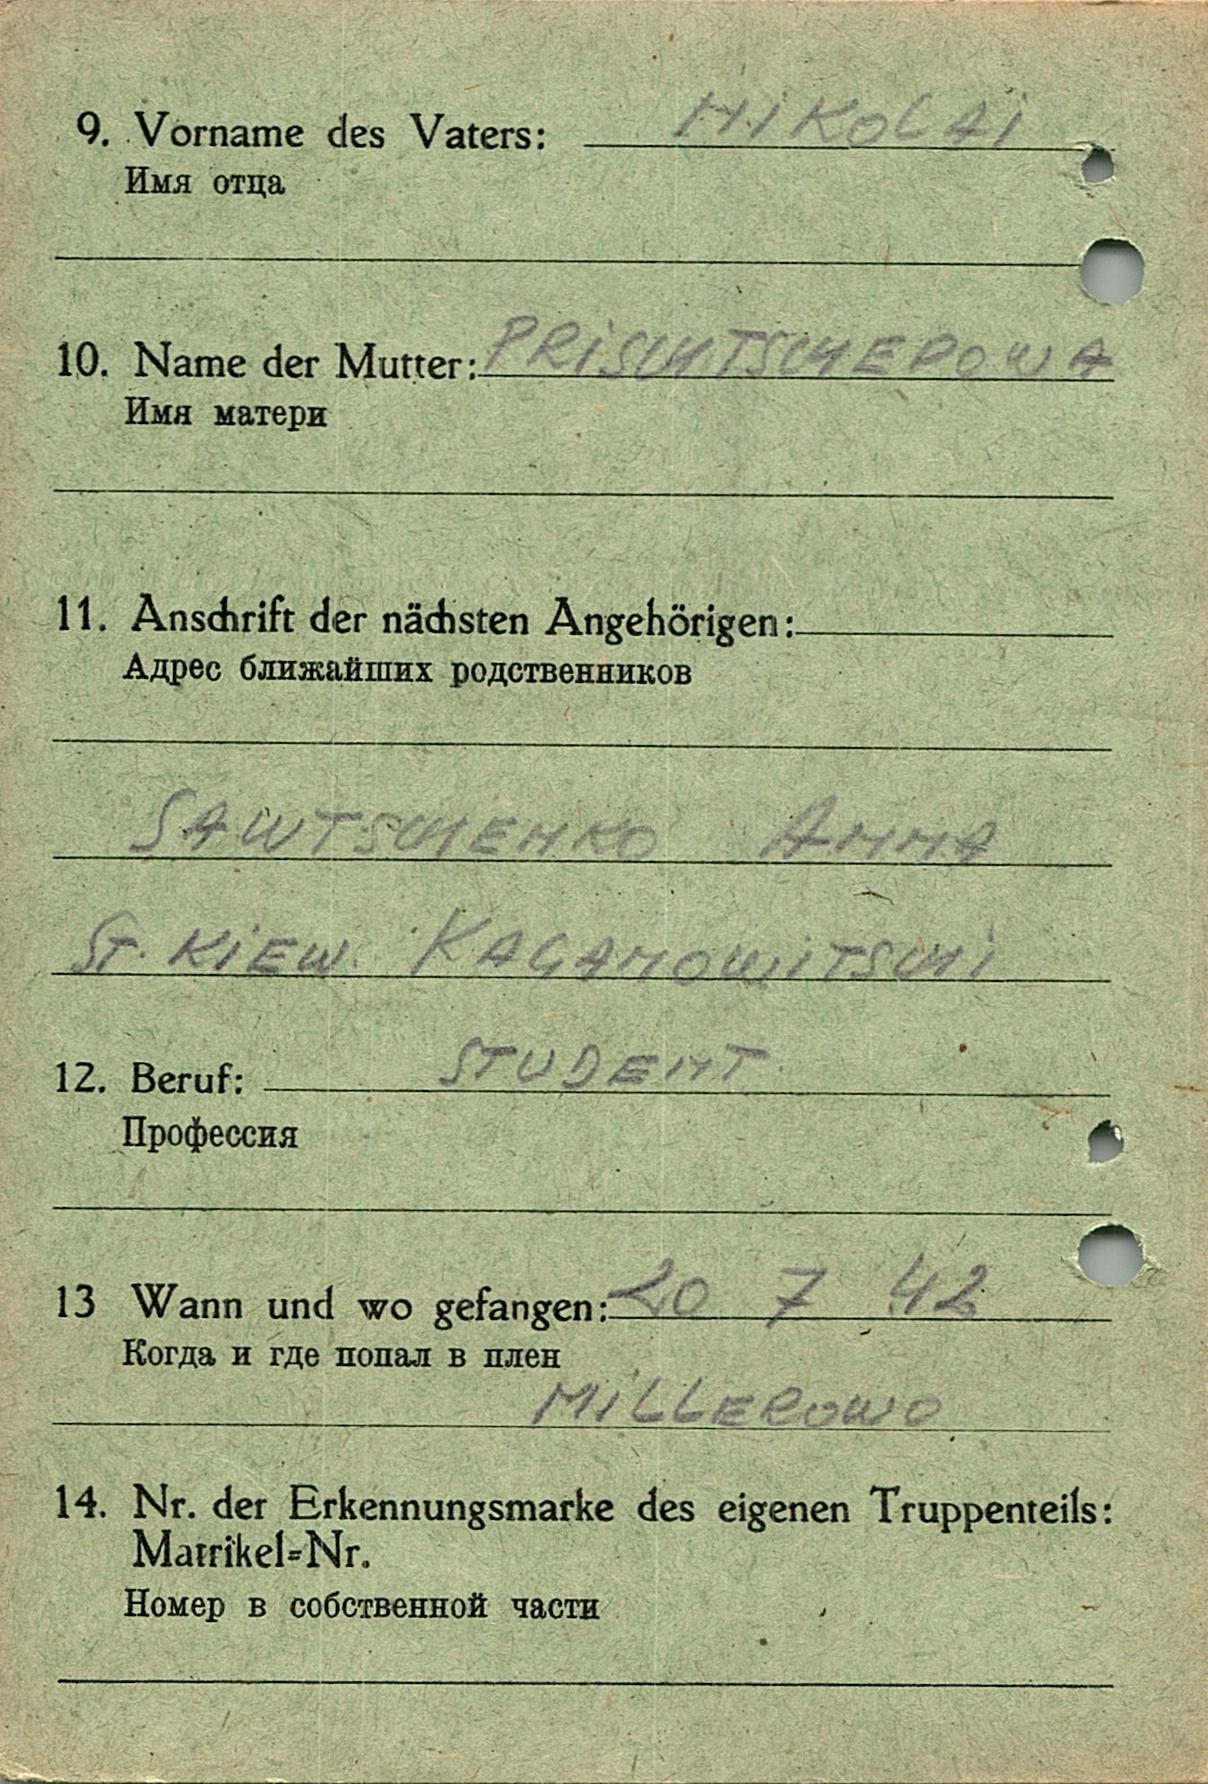 9. Vorname des Vaters: NIKOLAI
Имя отца
10. Name der Mutter: PRISCHTSCHEPOWA
Имя матери
11. Anschrift der nächsten Angehörigen:
Адрес ближайших родственников
SAWTSCHENKO ANNA
ST. KIEW. KAGANOWITSCHI
12. Beruf: STUDENT.
Профессия
13 Wann und wo gefangen: 20 7 42
Когда и где попал в плен
MILLEROWO
14. Nr. der Erkennungsmarke des eigenen Truppenteils:
Matrikel=Nr.
Номер в собственной части